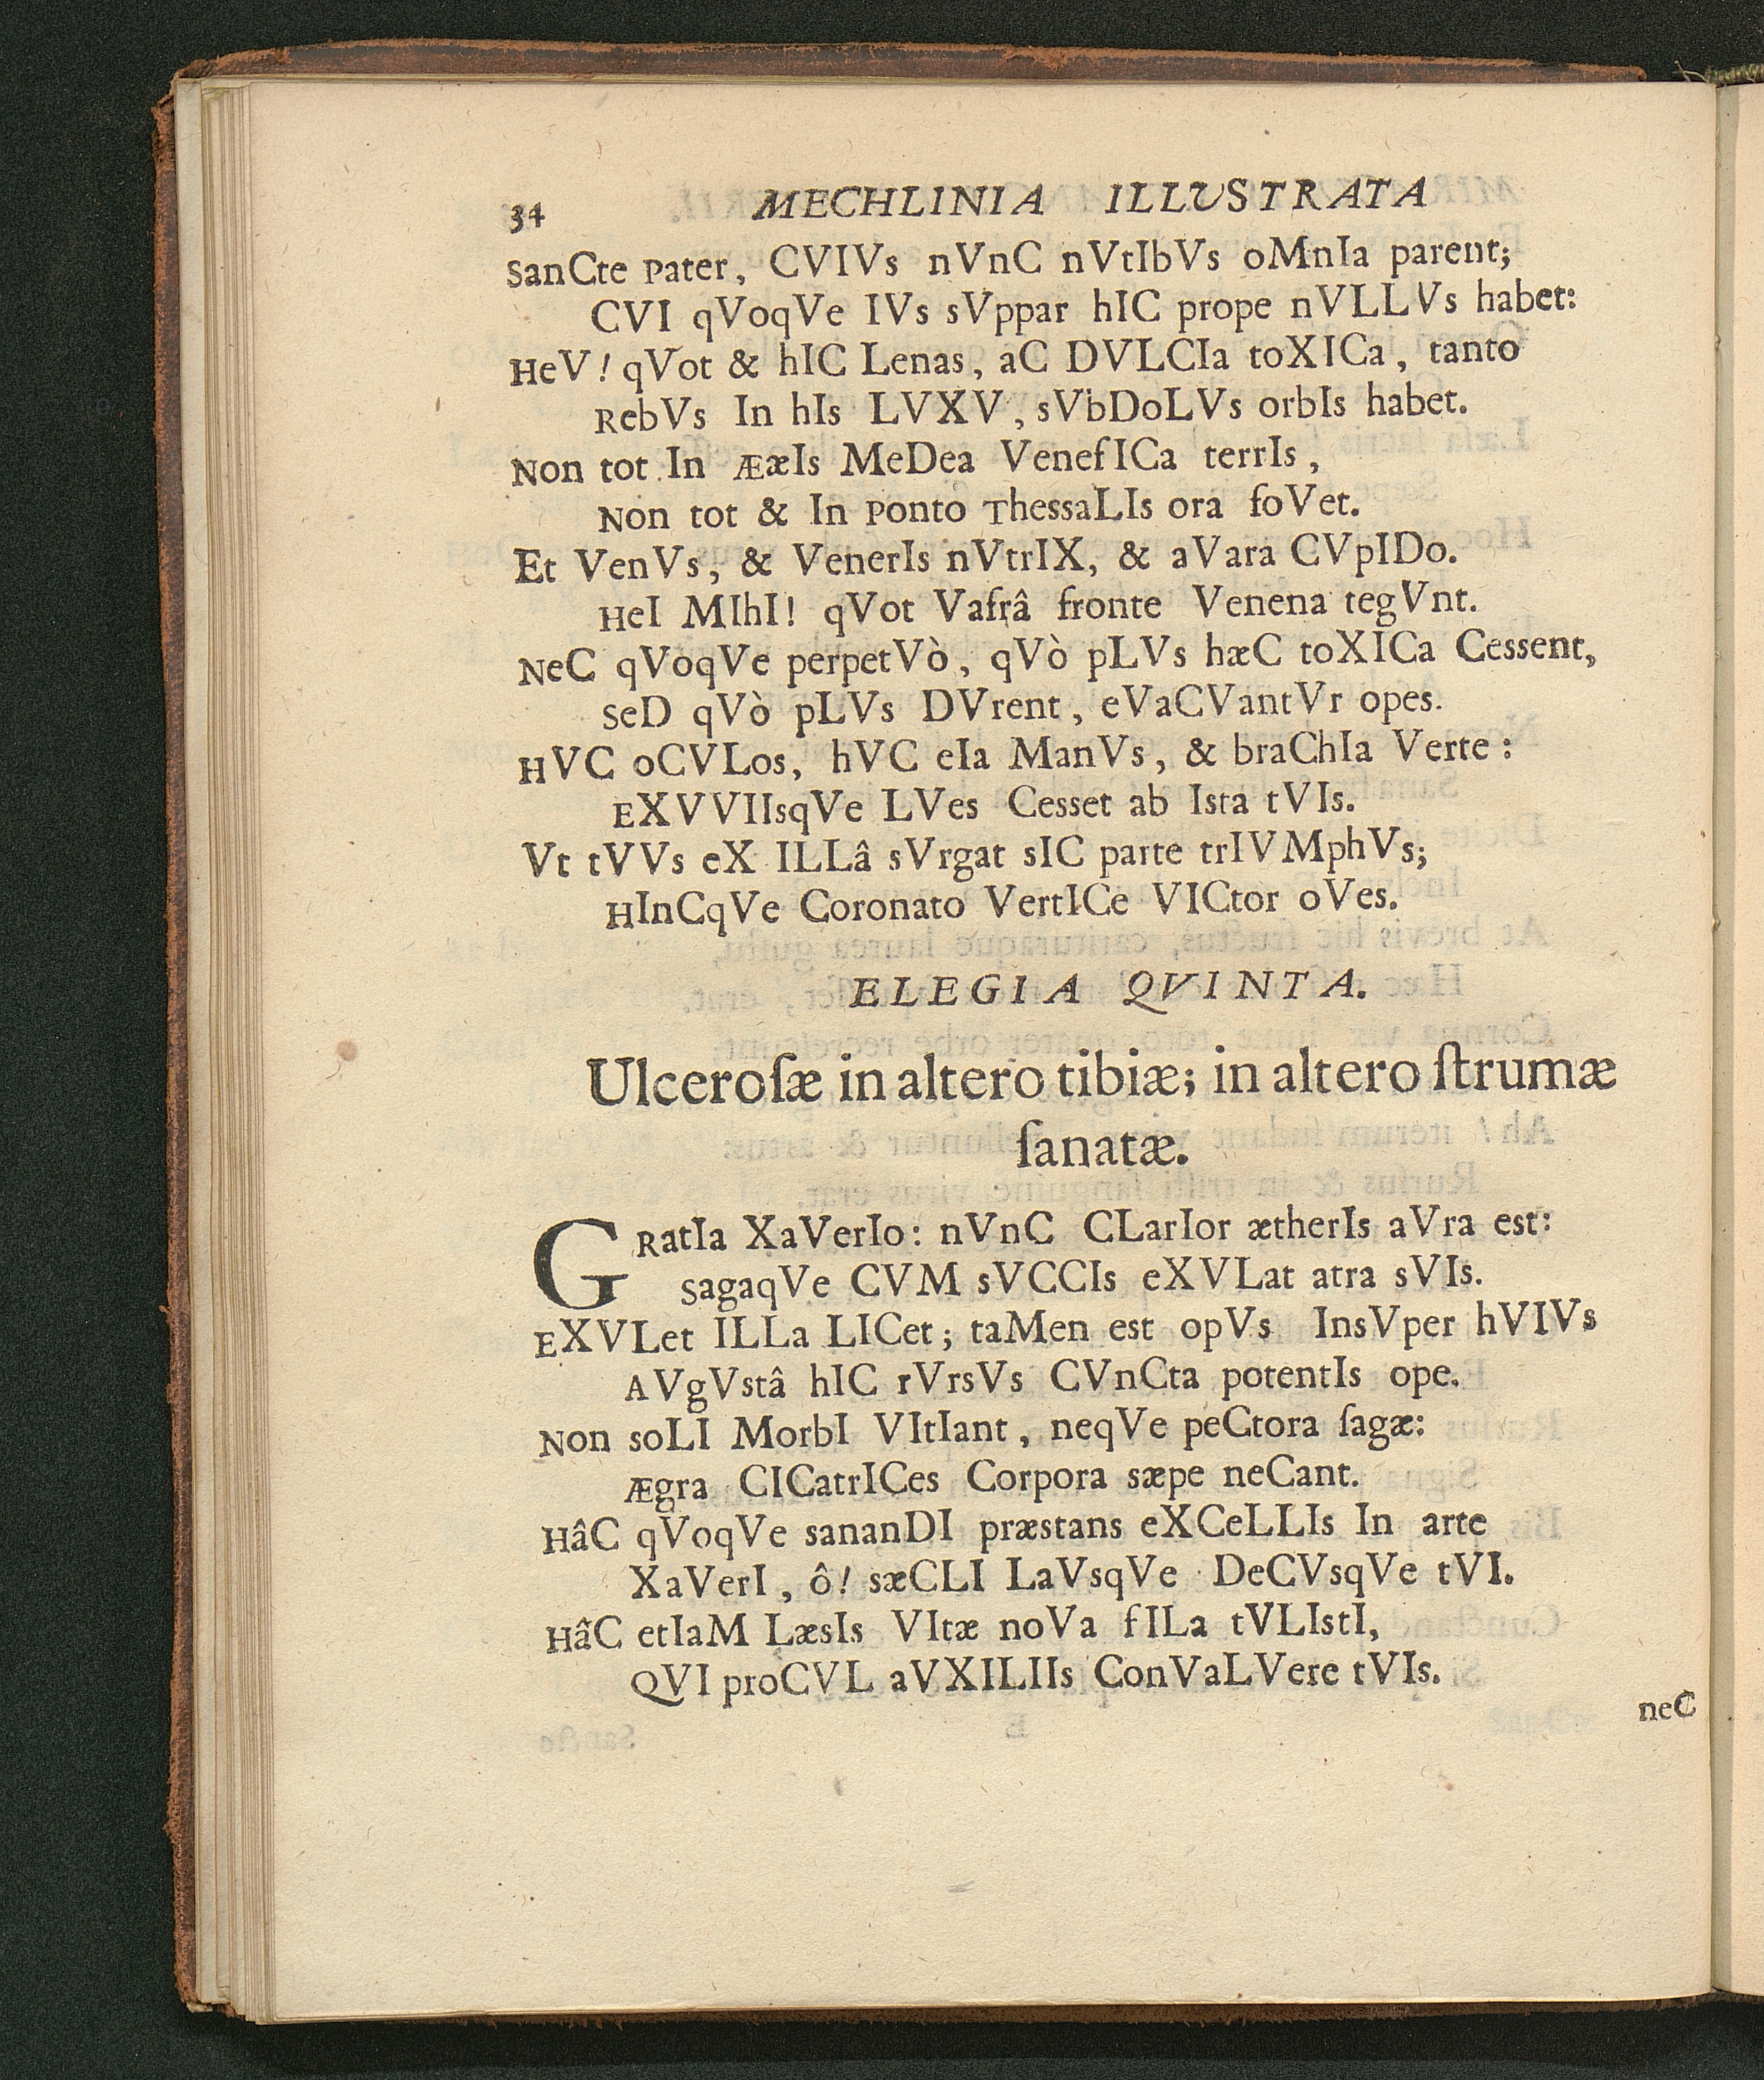 34 MECHLINIA ILLUSTRATA
SanCte Pater, CVIVs nVnC nVtIbVs oMnIa parent;
CVI qVoqVe IVs sVppar hIC prope nVLLVs habet:
HeV! qVot & hIC Lenas, aC DVLCIa toXICa, tanto
RebVs In hIs LVXV, sVbDoLVs orbIs habet.
Non tot In ÆæIs MeDea VenefICa terrIs,
Non tot & In Ponto ThessaLIs ora foVet.
Et VenVs, & VenerIs nVtrIX, & aVara CVpIDo.
HeI MIhI! qVot Vafrâ fronte Venena tegVnt.
NeC qVoqVe perpetVò, qVò pLVs hæC toXICa Cessent,
SeD qVò pLVs DVrent, eVaCVantVr opes.
HVC oCVLos, hVC eIa ManVs, & braChIa Verte:
EXVVIIsqVe LVes Cesset ab Ista tVIs.
Vt tVVs eX ILLâ sVrgat sIC parte trIVMphVs;
HInCqVe Coronato VertICe VICtor oVes.
ELEGIA QVINTA.
Ulceroſæ in altero tibiæ; in altero ſtrumæ
ſanatæ.
GRatIa XaVerIo: nVnC CLarIor ætherIs aVra est:
SagaqVe CVM sVCCIs eXVLat atra sVIs.
EXVLet ILLa LICet; taMen est opVs InsVper hVIVs
AVgVstâ hIC rVrsVs CVnCta potentIs ope.
Non soLI MorbI VItIant, neqVe peCtora ſagæ:
Ægra CICatrICes Corpora sæpe neCant.
HâC qVoqVe sananDI præstans eXCeLLIs In arte
XaVerI, ô! sæCLI LaVsqVe DeCVsqVe tVI.
HâC etIaM LæsIs VItæ noVa fILa tVLIstI,
QVI proCVL aVXILIIs ConVaLVere tVIs.
neC